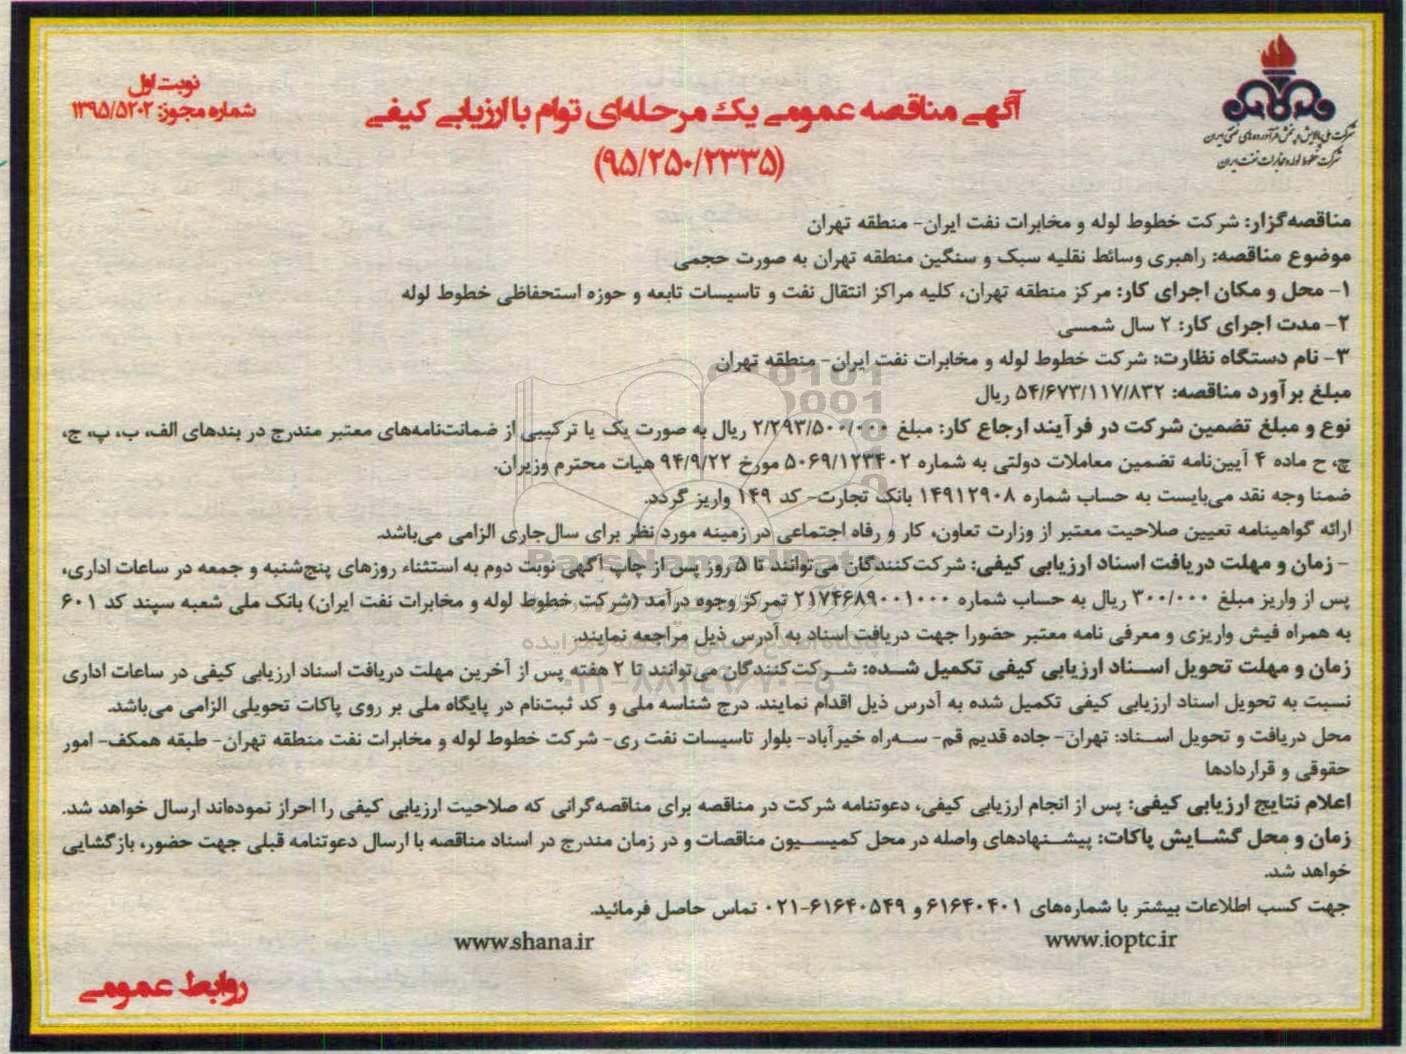 شرکت ملی پالایش و پخش فرآورده‌های نفتی ایران
شرکت خطوط لوله و مخابرات نفت ایران
نوبت اول
شماره مجوز: ۱۳۹۵/۵۲۰۲
آگهی مناقصه عمومی یک مرحله‌ای توام با ارزیابی کیفی
(۹۵/۲۵۰/۲۳۳۵)
مناقصه‌گزار: شرکت خطوط لوله و مخابرات نفت ایران- منطقه تهران
موضوع مناقصه: راهبری وسائط نقلیه سبک و سنگین منطقه تهران به صورت حجمی
۱- محل و مکان اجرای کار: مرکز منطقه تهران، کلیه مراکز انتقال نفت و تاسیسات تابعه و حوزه استحفاظی خطوط لوله
۲- مدت اجرای کار: ۲ سال شمسی
۳- نام دستگاه نظارت: شرکت خطوط لوله و مخابرات نفت ایران- منطقه تهران
مبلغ برآورد مناقصه: ۵۴/۶۷۳/۱۱۷/۸۳۲ ریال
نوع و مبلغ تضمین شرکت در فرآیند ارجاع کار: مبلغ ۲/۲۹۳/۵۰۰/۰۰۰ ریال به صورت یک یا ترکیبی از ضمانت‌نامه‌های معتبر مندرج در بندهای الف، ب، پ، ج،
چ، ح ماده ۴ آیین‌نامه تضمین معاملات دولتی به شماره ۵۰۶۹/۱۲۳۴۰۲ مورخ ۹۴/۹/۲۲ هیات محترم وزیران.
ضمنا وجه نقد می‌بایست به حساب شماره ۱۴۹۱۲۹۰۸ بانک تجارت- کد ۱۴۹ واریز گردد.
ارائه گواهینامه تعیین صلاحیت معتبر از وزارت تعاون، کار و رفاه اجتماعی در زمینه مورد نظر برای سال‌جاری الزامی می‌باشد.
- زمان و مهلت دریافت اسناد ارزیابی کیفی: شرکت‌کنندگان می‌توانند تا ۵ روز پس از چاپ آگهی نوبت دوم به استثناء روزهای پنج‌شنبه و جمعه در ساعات اداری،
پس از واریز مبلغ ۳۰۰/۰۰۰ ریال به حساب شماره ۲۱۷۴۶۸۹۰۰۱۰۰۰ تمرکز وجوه درآمد (شرکت خطوط لوله و مخابرات نفت ایران) بانک ملی شعبه سپند کد ۶۰۱
به همراه فیش واریزی و معرفی نامه معتبر حضورا جهت دریافت اسناد به آدرس ذیل مراجعه نمایند.
زمان و مهلت تحویل اسناد ارزیابی کیفی تکمیل شده: شرکت‌کنندگان می‌توانند تا ۲ هفته پس از آخرین مهلت دریافت اسناد ارزیابی کیفی در ساعات اداری
نسبت به تحویل اسناد ارزیابی کیفی تکمیل شده به آدرس ذیل اقدام نمایند. درج شناسه ملی و کد ثبت‌نام در پایگاه ملی بر روی پاکات تحویلی الزامی می‌باشد.
محل دریافت و تحویل اسناد: تهران- جاده قدیم قم- سه‌راه خیرآباد- بلوار تاسیسات نفت ری- شرکت خطوط لوله و مخابرات نفت منطقه تهران- طبقه همکف- امور
حقوقی و قراردادها
اعلام نتایج ارزیابی کیفی: پس از انجام ارزیابی کیفی، دعوتنامه شرکت در مناقصه برای مناقصه‌گرانی که صلاحیت ارزیابی کیفی را احراز نموده‌اند ارسال خواهد شد.
زمان و محل گشایش پاکات: پیشنهادهای واصله در محل کمیسیون مناقصات و در زمان مندرج در اسناد مناقصه با ارسال دعوتنامه قبلی جهت حضور، بازگشایی
خواهد شد.
جهت کسب اطلاعات بیشتر با شماره‌های ۶۱۶۴۰۴۰۱ و ۶۱۶۴۰۵۴۹-۰۲۱ تماس حاصل فرمائید.
www.ioptc.ir
www.shana.ir
روابط عمومی
ParsNamadData